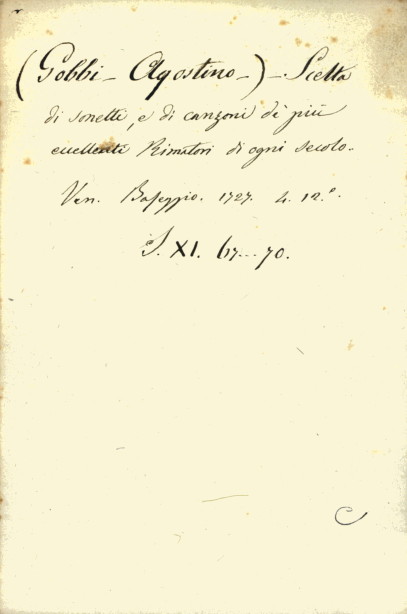 (Gobbi - Agostino -) - Scelta
di sonetti, e di canzoni de' più
eccellenti Rimatori di ogni secolo.
Ven. Baseggio. 1727. 4. 12.º
S. XI. 67... 70.
C